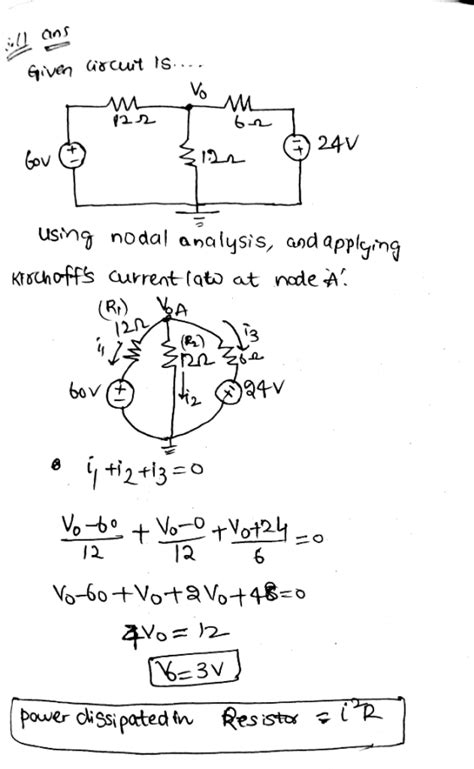 ans
Given circuit is....
V₀
12Ω 6Ω
60V 12Ω 24V
using nodal analysis, and applying
Kirchoff's current law at node 'A'.
(R₁) V₀ A
12Ω (R₂) i₃
i₁ 12Ω 6Ω
60V i₂ 24V
i₁ + i₂ + i₃ = 0
V₀-60/12 + V₀-0/12 + V₀+24/6 = 0
V₀-60+V₀+2V₀+48=0
4V₀ = 12
V₀ = 3V
power dissipated in Resistor = i²R